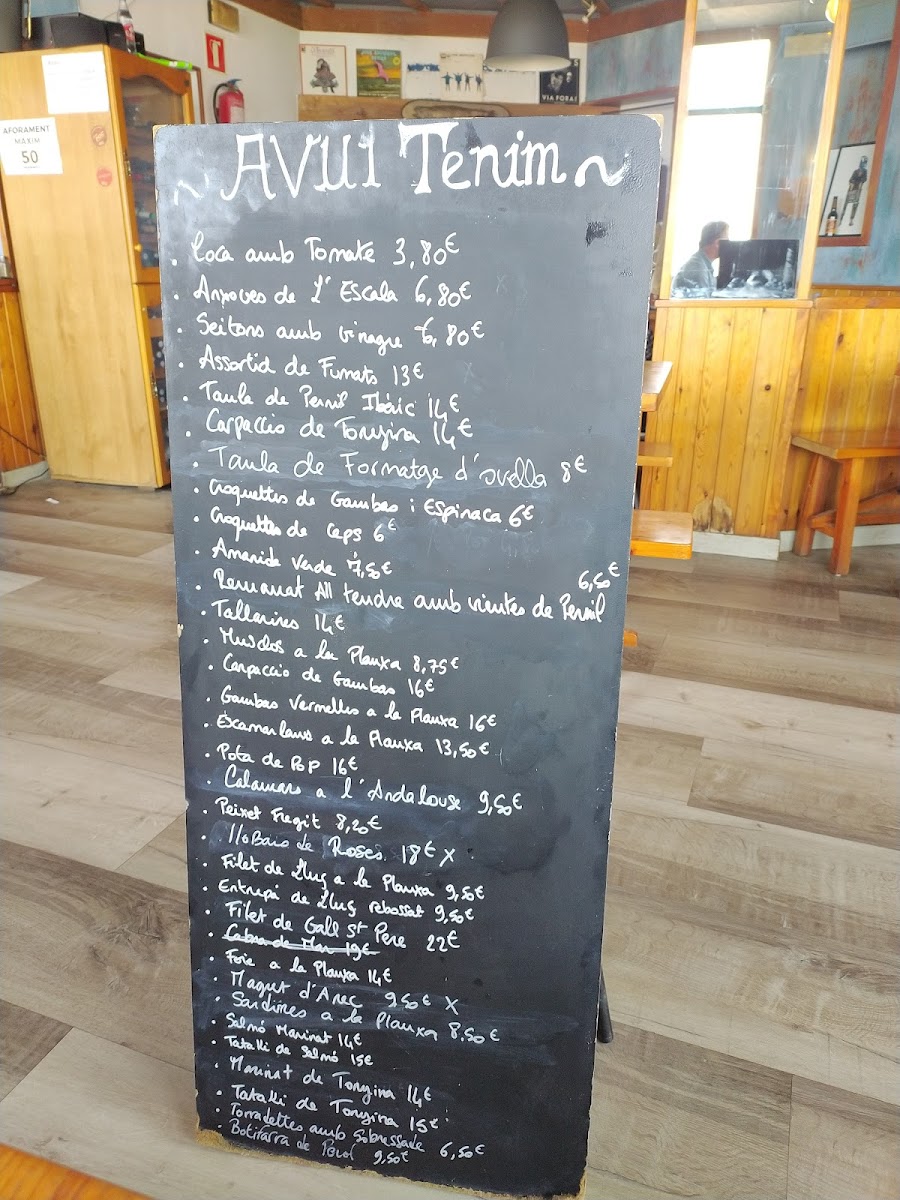 AFORAMENT
MAXIM
50
VIA FORA!
~ AVUI Tenim ~
. Coca amb Tomate 3,80€
. Anxoves de L'Escala 6,80€
. Seitons amb vinagre 6,80€
. Assortid de Fumats 13€
. Taula de Pernil Ibèric 14€
. Carpaccio de Tonyina 14€
. Taula de Formatge d'ovella 8€
. Croquettes de Gambas i Espinaca 6€
. Croquettes de Ceps 6€
. Amanida Verde 7,50€
. Remanat All tendre amb vientes de Pernil 6,50€
. Tallarines 14€
. Musclos a la Planxa 8,75€
. Carpaccio de Gambas 16€
. Gambas Vermelles a la Planxa 16€
. Escamarlans a la Planxa 13,50€
. Pota de Pop 16€
. Calamars a l'Andalouse 9,50€
. Peixet Fregit 8,20€
. Llobarro de Roses 18€ X
. Filet de Lluç a la Planxa 9,50€
. Entrepà de Lluç rebossat 9,50€
. Filet de Gall St Pere 22€
. Cabra de Mar 19€
. Foie a la Planxa 14€
. Magret d'Anec 9,50€ X
. Sardines a la Planxa 8,50€
. Salmó Marinat 14€
. Tataki de Salmó 15€
. Marinat de Tonyina 14€
. Tataki de Tonyina 15€
. Torradettes amb Sobressade 6,50€
. Botifarra de Perol 9,50€